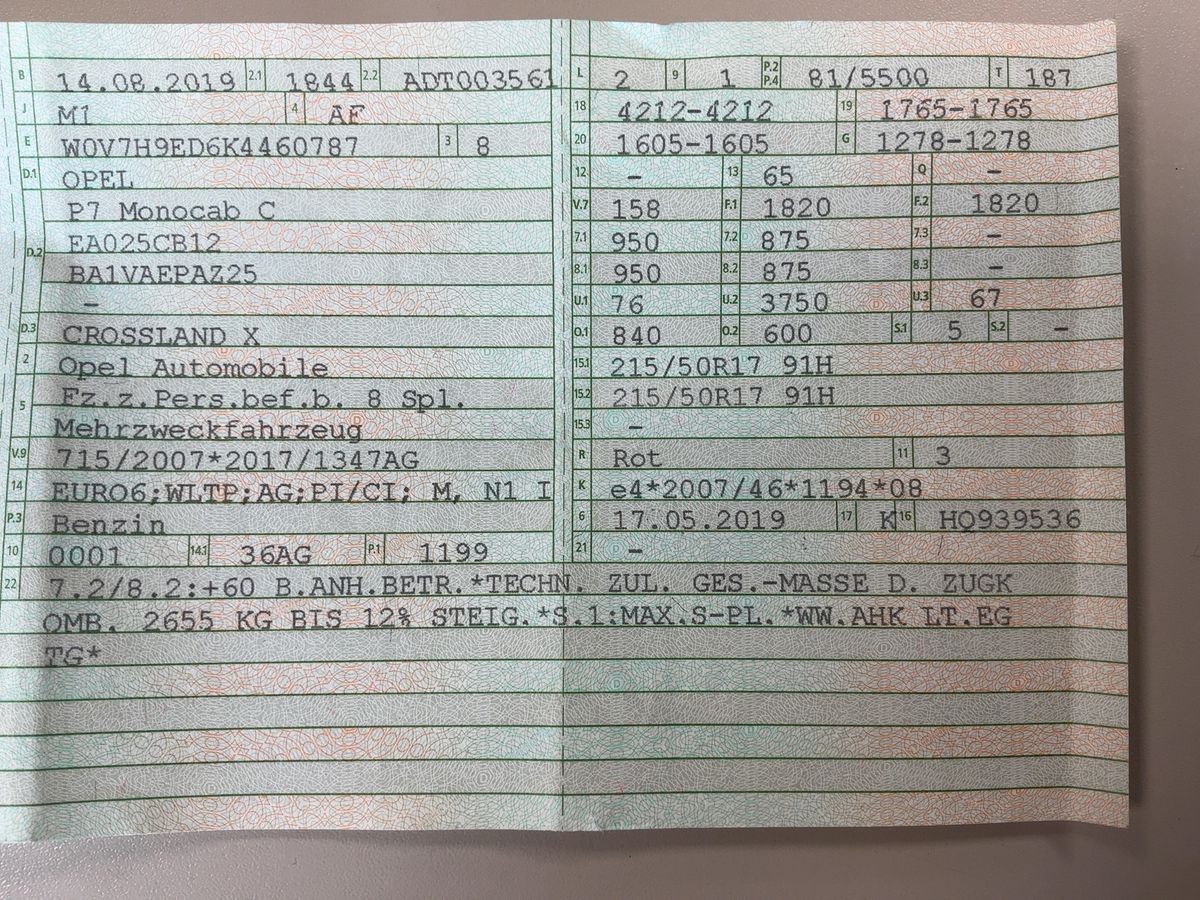 B 14.08.2019 2.1 1844 2.2 ADT003561
J M1 4 AF
E W0V7H9ED6K4460787 3 8
D.1 OPEL
P7 Monocab C
D.2 EA025CB12
BA1VAEPAZ25
–
D.3 CROSSLAND X
2 Opel Automobile
5 Fz.z.Pers.bef.b. 8 Spl.
Mehrzweckfahrzeug
V.9 715/2007*2017/1347AG
14 EURO6;WLTP;AG;PI/CI; M, N1 I
P.3 Benzin
10 0001 14.1 36AG P.1 1199
L 2 9 1 P.2 P.4 81/5500 T 187
18 4212-4212 19 1765-1765
20 1605-1605 G 1278-1278
12 – 13 65 Q –
V.7 158 F.1 1820 F.2 1820
7.1 950 7.2 875 7.3 –
8.1 950 8.2 875 8.3 –
U.1 76 U.2 3750 U.3 67
O.1 840 O.2 600 S.1 5 S.2 –
15.1 215/50R17 91H
15.2 215/50R17 91H
15.3 –
R Rot 11 3
K e4*2007/46*1194*08
6 17.05.2019 17 K 16 HQ939536
21 –
22 7.2/8.2:+60 B.ANH.BETR.*TECHN. ZUL. GES.-MASSE D. ZUGK
OMB. 2655 KG BIS 12% STEIG.*S.1:MAX.S-PL.*WW.AHK LT.EG
TG*